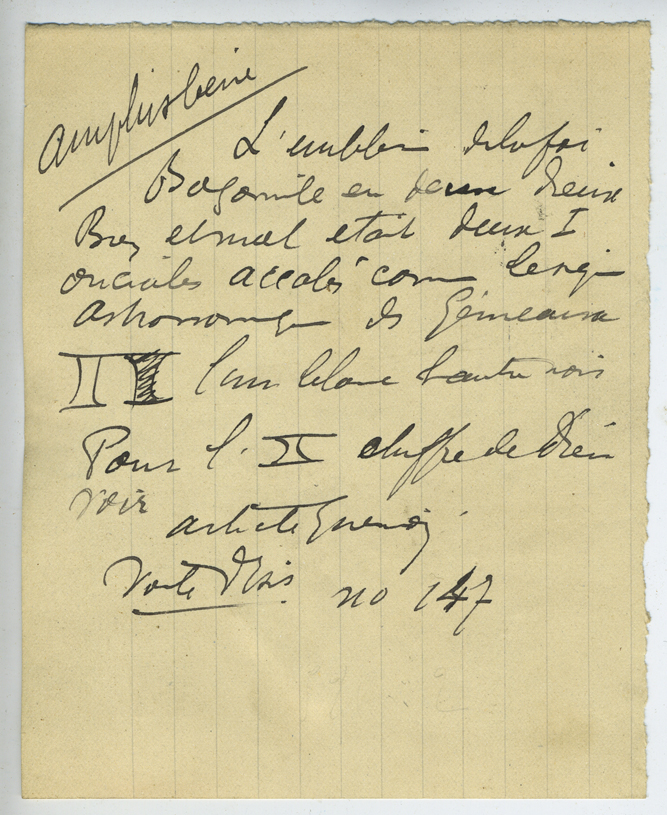 amphisbène
L'emblème de la foi
Bogomile en deux dieux
Bien et mal était deux I
onciales accolés comme le signe
astronomique des Gémeaux
II l'un blanc l'autre noir
Pour l'I chiffre de Dieu
voir
article Guénon
Voile d'Isis no 147